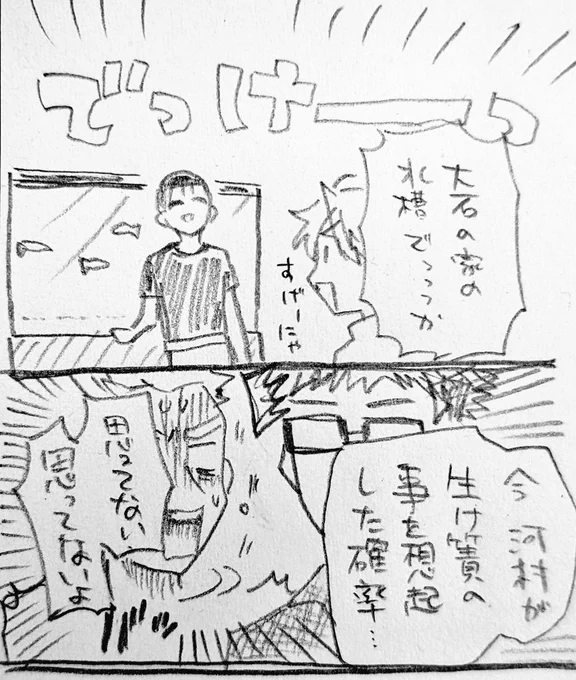 でっけーっ
大石の家の
水槽でっっっか
すげーにゃ
今河村が
生け簀の
事を想起
した確率…
思ってない
思ってないよ